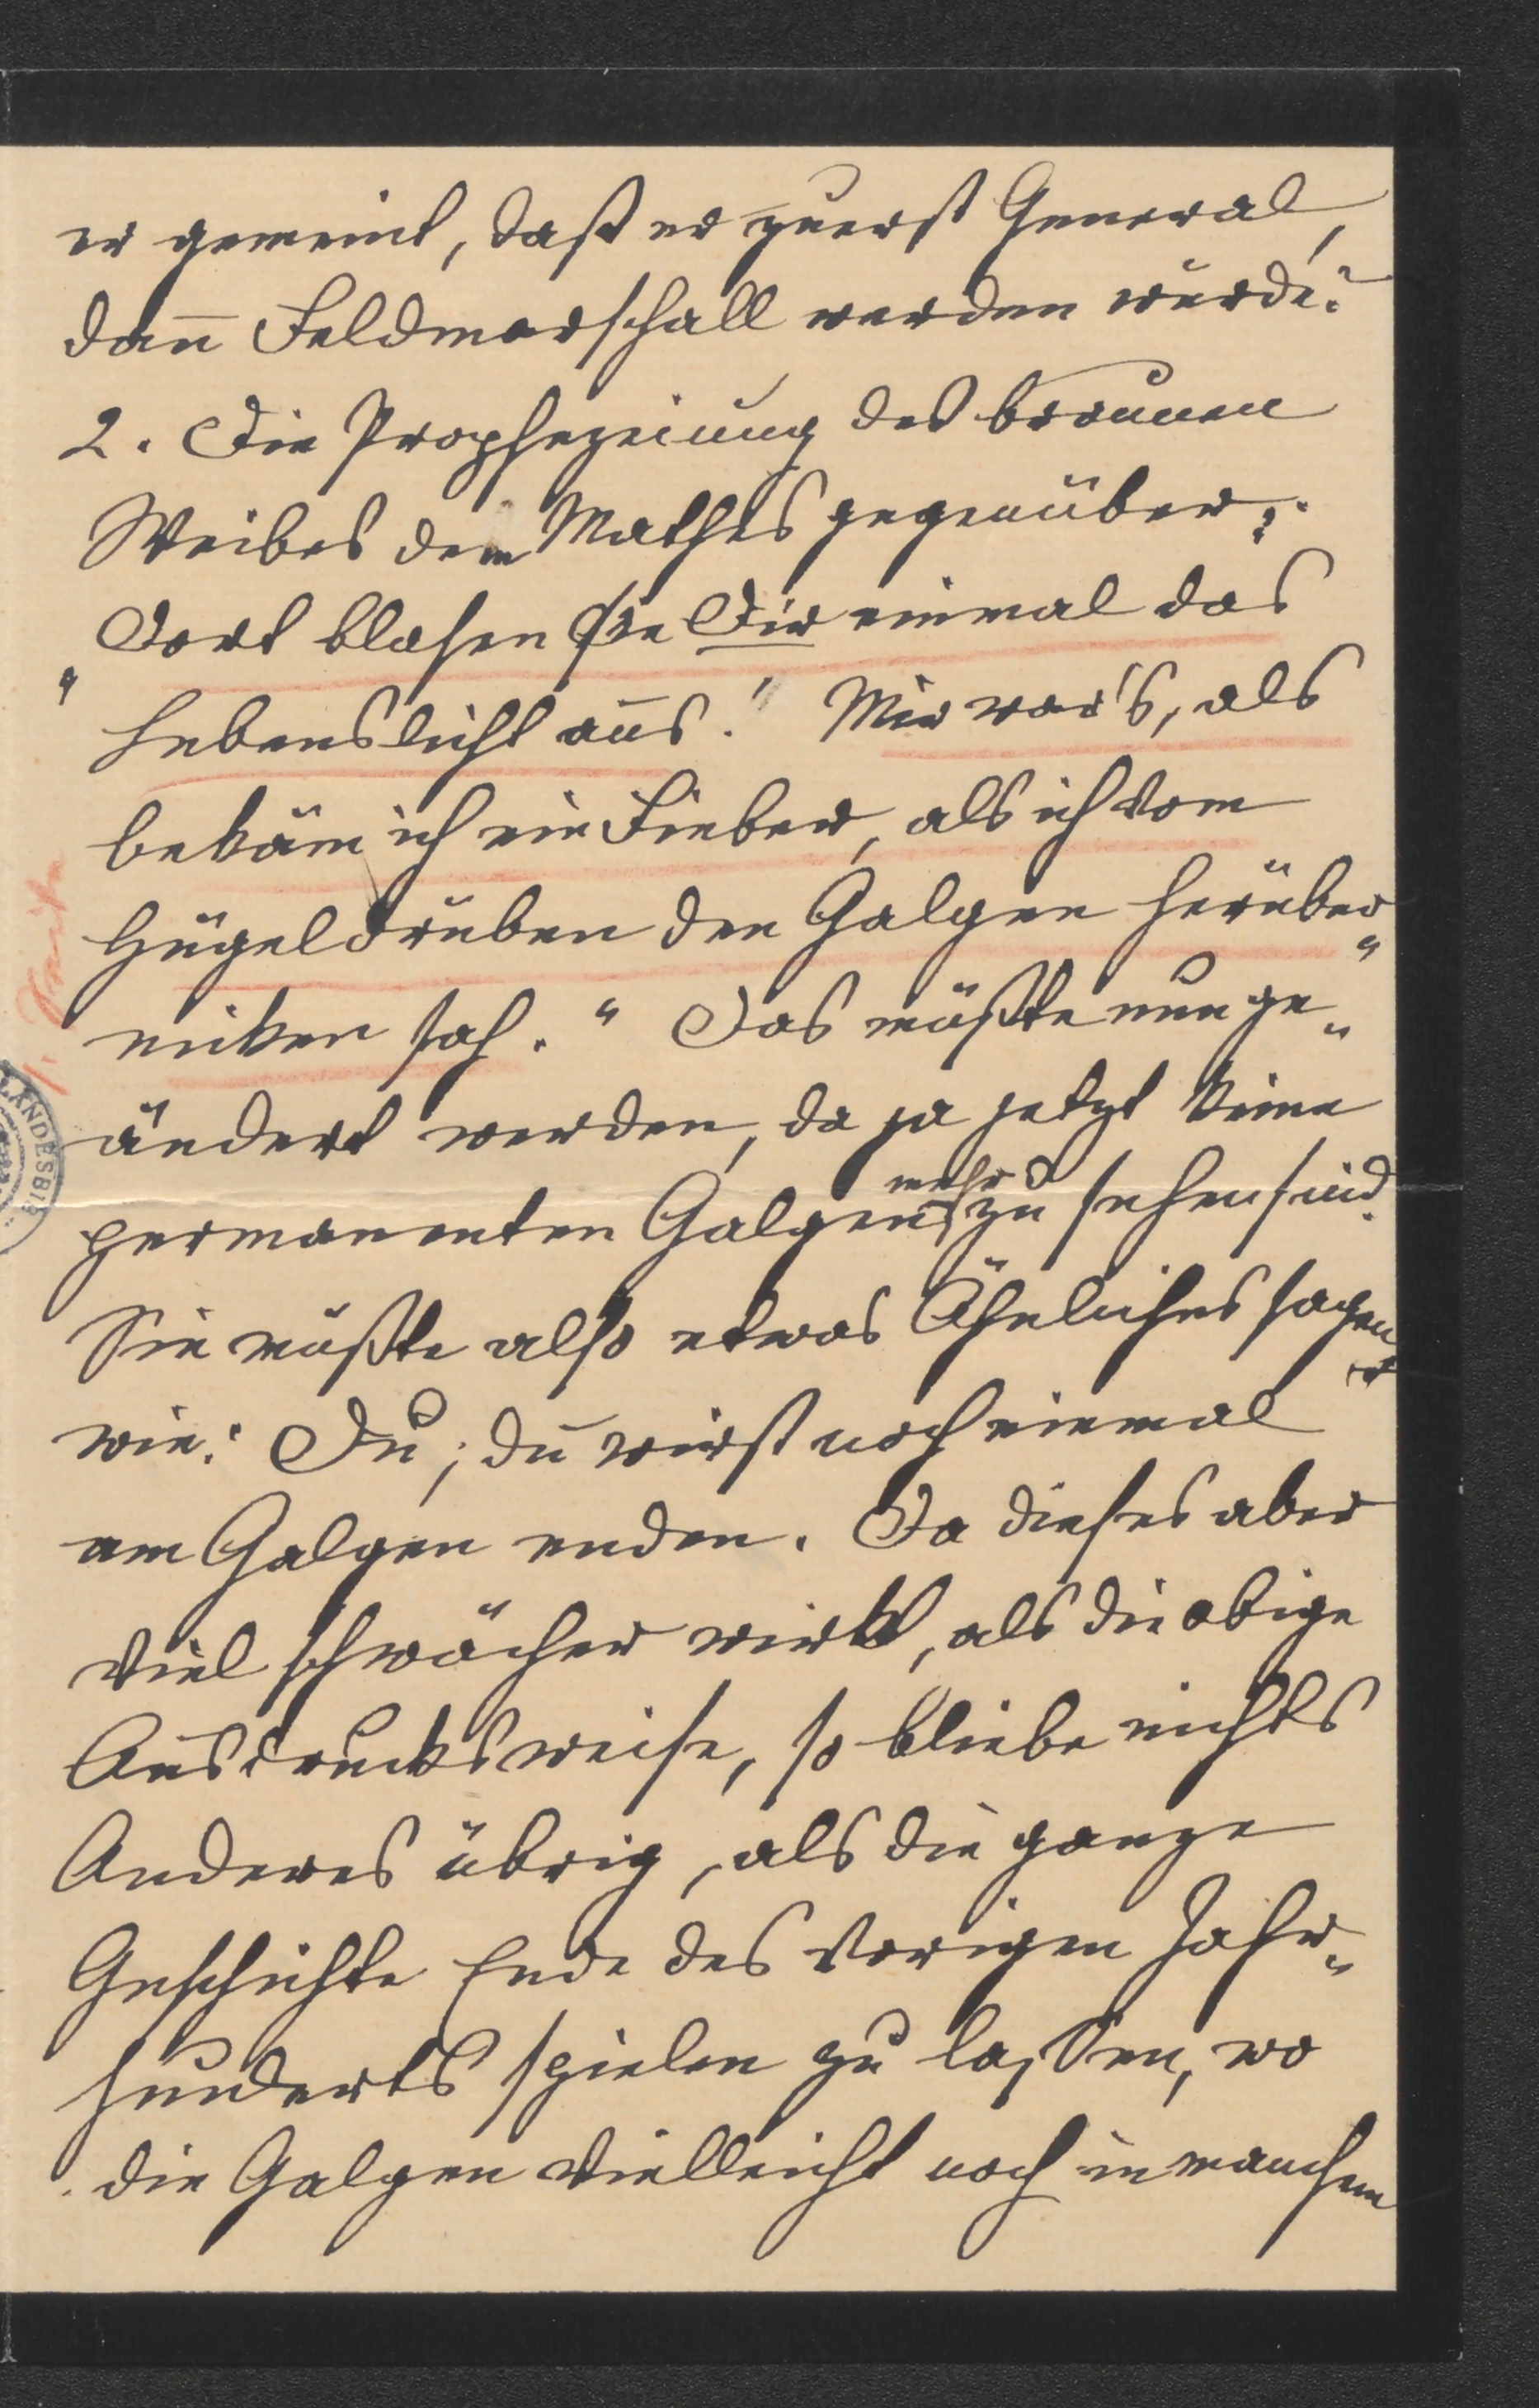 er gemeint, daß er zuerst General,
dan̄ Feldmarschall werden würde?
2. Die Prophezeiung des braunen
Weibes dem Mathes gegenüber:
„Dort blasen sie Dir einmal das
Lebenslicht aus." Mir war's, als
bekäm ich ein Fieber, als ich vom
Hügel drüben den Galgen herüber„
nicken sah." Das müßte nun ge„
ändert werden, da ja jetzt keine
permanenten Galgen mehr zu sehen sind.
Sie müßte also etwas Ähnliches sagen
wie: Du; du wirst noch einmal
am Galgen enden. Da dieses aber
viel schwächer wirkt, als die obige
Ausdrucksweise, so bliebe nichts
Anderes übrig, als die ganze
Geschichte Ende des vorigen Jahr„
hunderts spielen zu lassen, wo
die Galgen vielleicht noch in manchem
LANDESBIB